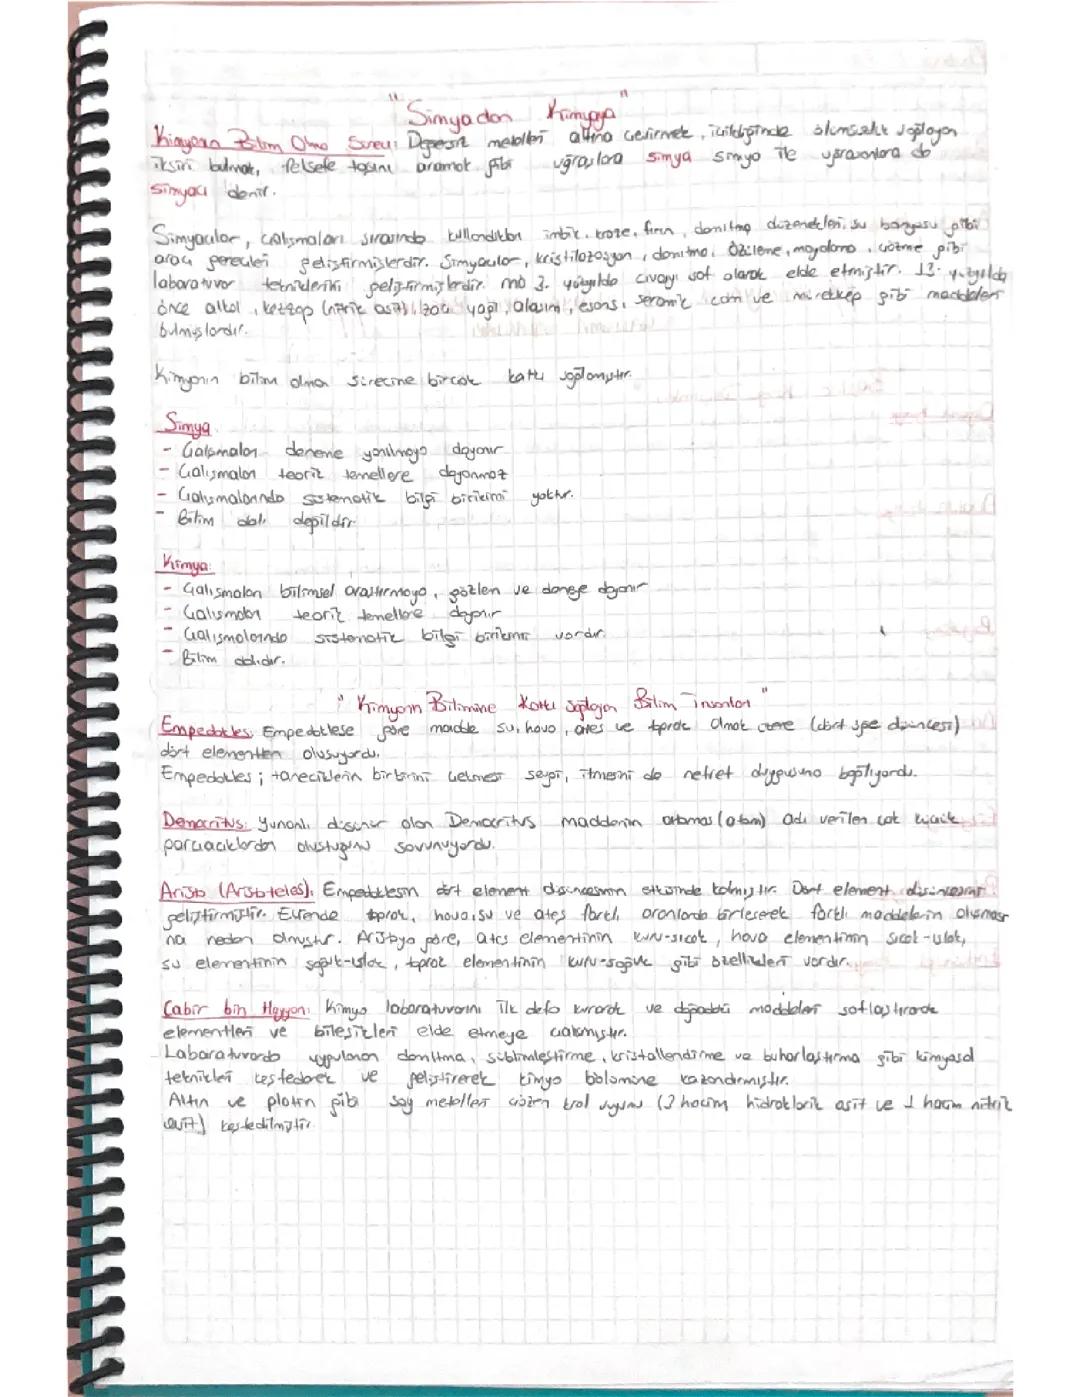 "Simyadan Kimyaya"
Kimyanın Bilim Olma Süreci: Değersiz metalleri altına çevirmek, içildiğinde ölümsüzlük sağlayan
iksiri bulmak, felsefe taşını aramak gibi uğraşlara simya simya ile uğraşanlara da
simyacı denir.
Simyacılar, çalışmaları sırasında kullandıkları imbik, kroze, fırın, damıtma düzenekleri, su banyosu gibi
araç gereçleri geliştirmişlerdir. Simyacılar, kristilazosyon, damıtma, özütleme, mayalama, çözme gibi
laboratuvar tekniklerini geliştirmişlerdir. mö 3. yüzyılda civayı saf olarak elde etmiştir. 13. yüzyılda
önce alkol, kezzap (nitrik asit), zaç yağı, alaşım, esans, seramik, cam ve mürekkep gibi maddeleri
bulmuşlardır.
Kimyanın bilim olma sürecine birçok katkı sağlamıştır.
Simya
- Çalışmaları deneme yanılmaya dayanır
- Çalışmaları teorik temellere dayanmaz
- Çalışmalarında sistematik bilgi birikimi yoktur.
- Bilim dalı değildir
Kimya:
- Çalışmaları bilimsel araştırmaya, gözlem ve deneye dayanır
- Çalışmaları teorik temellere dayanır
- Çalışmalarında sistematik bilgi birikimi vardır.
- Bilim dalıdır.
"Kimyanın Bilimine Katkı Sağlayan Bilim İnsanları"
Empedokles: Empedoklese göre madde su, hava, ateş ve toprak olmak üzere (dört öge düşüncesi)
dört elementten oluşuyordu.
Empedokles; taneciklerin birbirini çekmesi sevgi, itmesini de nefret duygusuna bağlıyordu.
Democritus: Yunanlı düşünür olan Democritus maddenin atomos (atom) adı verilen çok küçük
parçacıklardan oluştuğunu savunuyordu.
Aristo (Aristoteles): Empedoklesin dört element düşüncesinin etkisinde kalmıştır. Dört element düşüncesini
geliştirmiştir. Evrende toprak, hava, su ve ateş farklı oranlarda birleşerek farklı maddelerin oluşması
na neden olmuştur. Aristoya göre, ateş elementinin kuru-sıcak, hava elementinin sıcak-ıslak,
su elementinin soğuk-ıslak, toprak elementinin kuru-soğuk gibi özellikleri vardır.
Cabir bin Hayyan: Kimya laboratuvarını ilk defa kurarak ve doğadaki maddeleri saflaştırarak
elementleri ve bileşikleri elde etmeye çalışmıştır.
Laboratuvarda uygulanan damıtma, süblimleştirme, kristallendirme ve buharlaştırma gibi kimyasal
teknikleri keşfederek ve geliştirerek kimya bölümüne kazandırmıştır.
Altın ve platin gibi soy metalleri çözen kral suyunu (3 hacim hidroklorik asit ve 1 hacim nitrik
asit) keşfedilmiştir